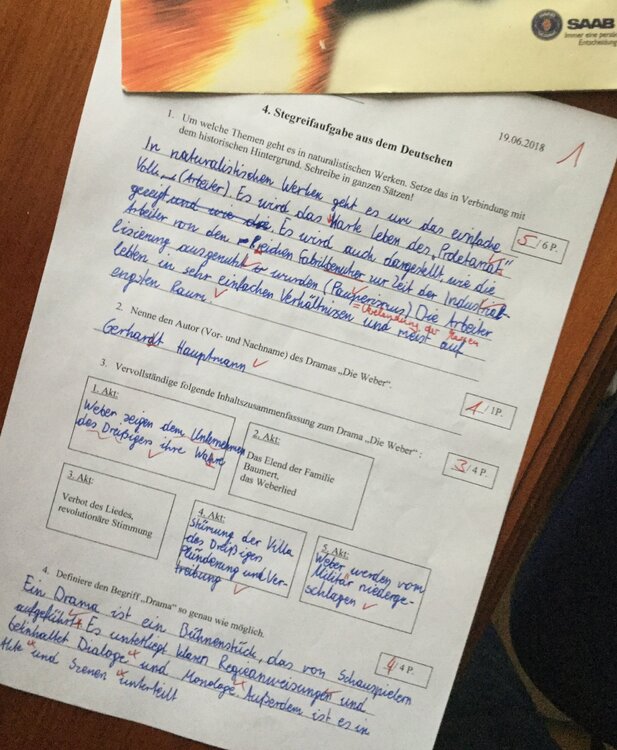 SAAB
Immer eine persönliche
Entscheidung
4. Stegreifaufgabe aus dem Deutschen
19.06.2018
1
1. Um welche Themen geht es in naturalistischen Werken. Setze das in Verbindung mit
dem historischen Hintergrund. Schreibe in ganzen Sätzen!
In naturalistischen Werken geht es um das einfache
Volk (Arbeiter). Es wird das Harte leben des „Proletariat"
gezeigt und wie die. Es wird auch dargestellt, wie die
Arbeiter von den Reichen Fabrikbesitzer zur Zeit der Industria-
lisierung ausgenutzt wurden (Pauperismus) Die Arbeiter
= Verelendung der Massen
lebten in sehr einfachen Verhältnissen und meist auf
engsten Raum.
5/6 P.
2. Nenne den Autor (Vor- und Nachname) des Dramas „Die Weber".
Gerhardt Hauptmann
1/1P.
3. Vervollständige folgende Inhaltszusammenfassung zum Drama „Die Weber":
3/4 P.
1. Akt:
Weber zeigen dem Unternehmen
des Dreißigers ihre Wahre
2. Akt:
Das Elend der Familie
Baumert,
das Weberlied
3. Akt:
Verbot des Liedes,
revolutionäre Stimmung
4. Akt:
Stürmung der Villa
des Dreißigers
Plünderung und Ver-
treibung
5. Akt:
Weber werden vom
Militär niederge-
schlagen
4. Definiere den Begriff „Drama" so genau wie möglich.
Ein Drama ist ein Bühnenstück, das von Schauspielern
aufgeführt. Es unterliegt klaren Regieanweisungen und
beinhaltet Dialoge und Monologe. Außerdem ist es in
Akte und Szenen unterteilt
4/4 P.